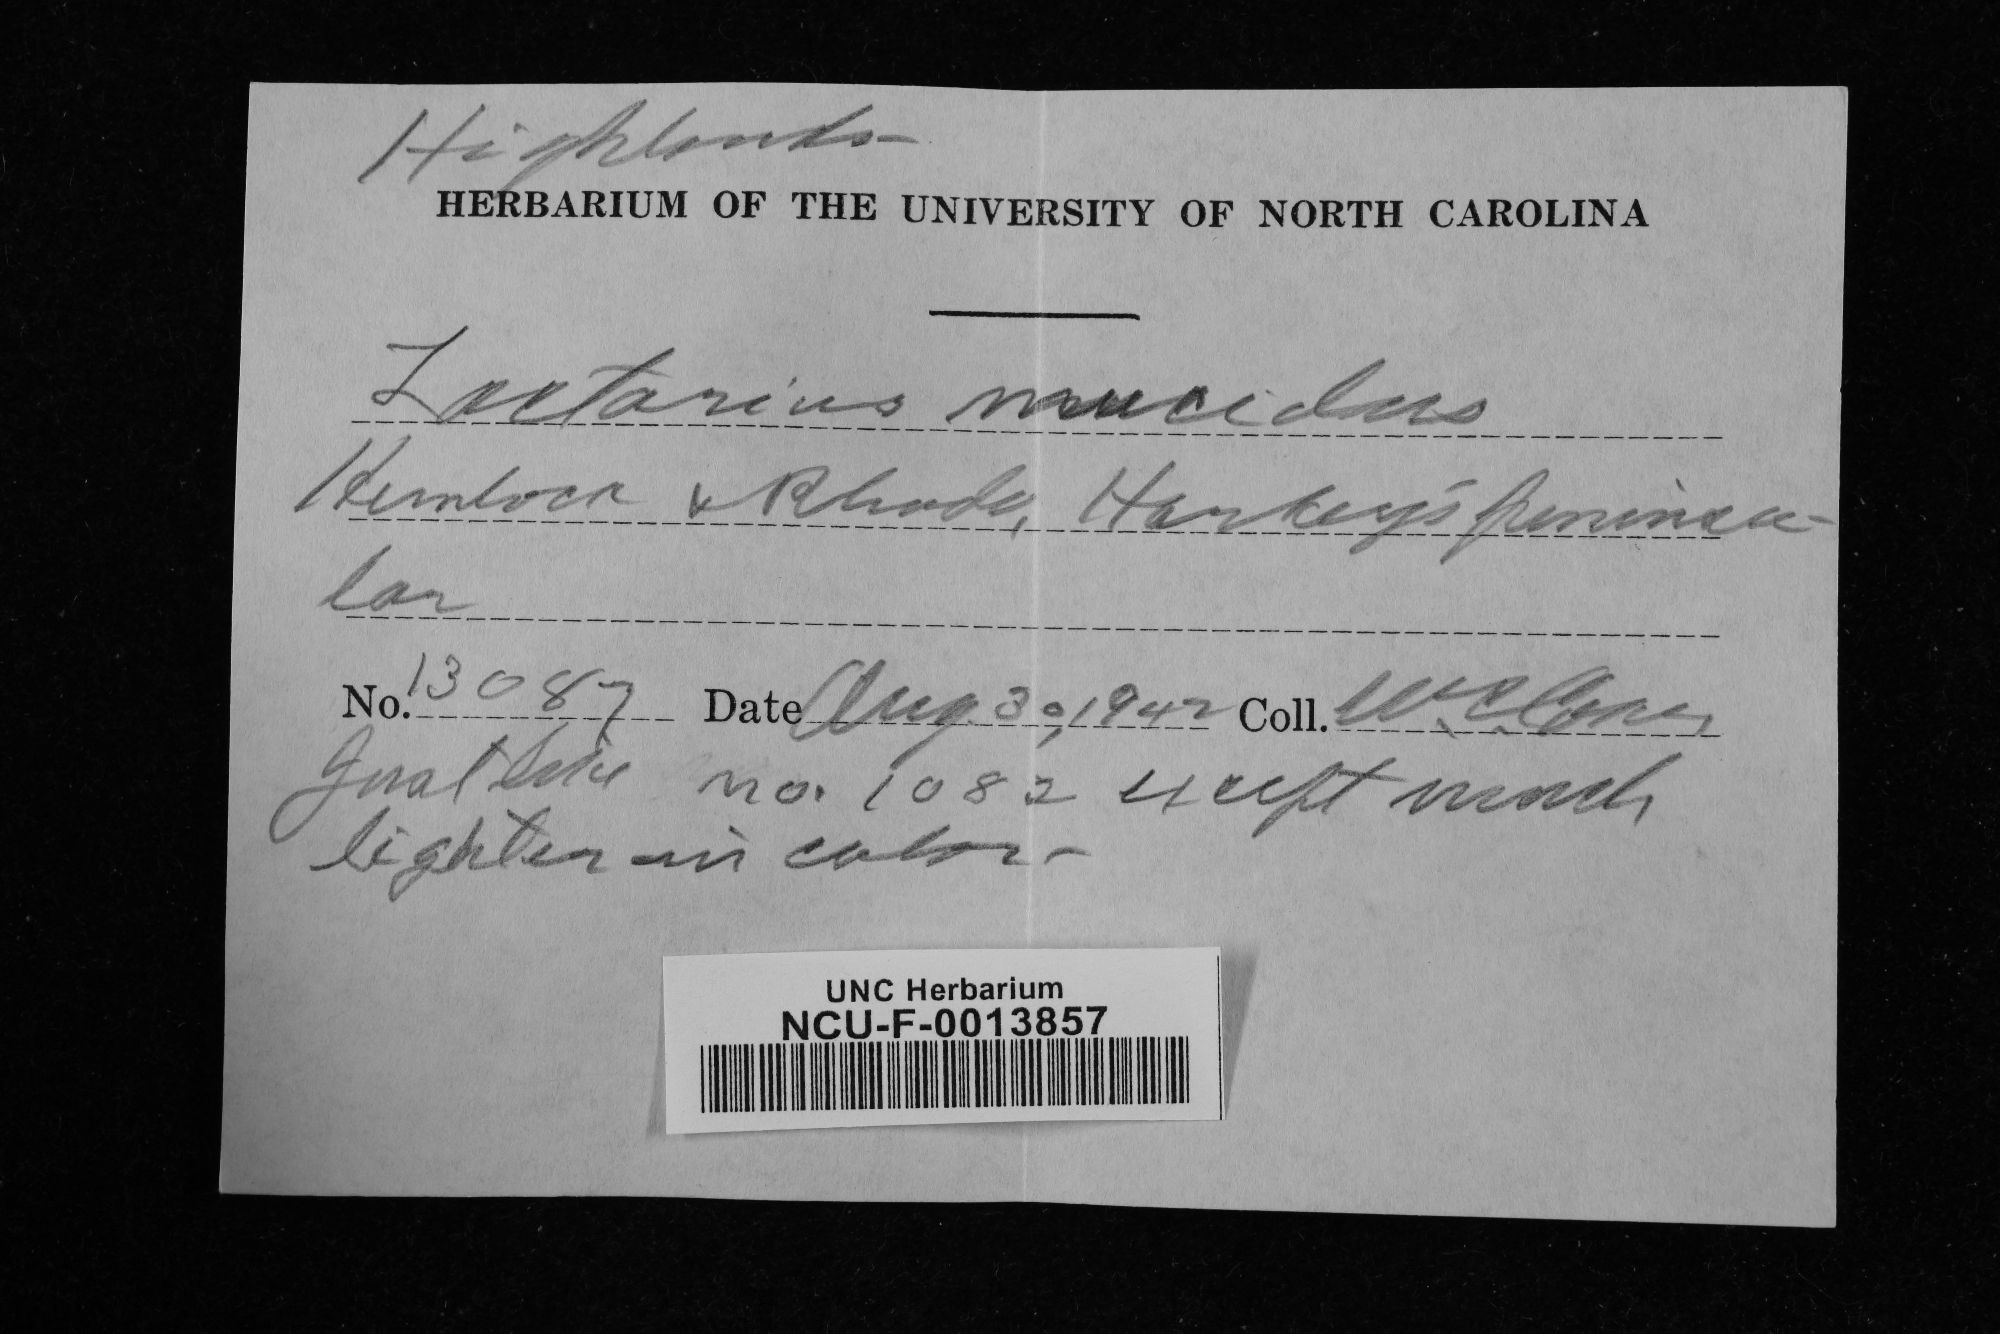 Highlands
HERBARIUM OF THE UNIVERSITY OF NORTH CAROLINA
Lactarius mucidus
Hemlock & Rhodo, Harbey's peninsu-
lar
No. 13087 Date Aug 30, 1942 Coll. W.C. Coker
Just like no. 1082 except much
lighter in color-
UNC Herbarium
NCU-F-0013857